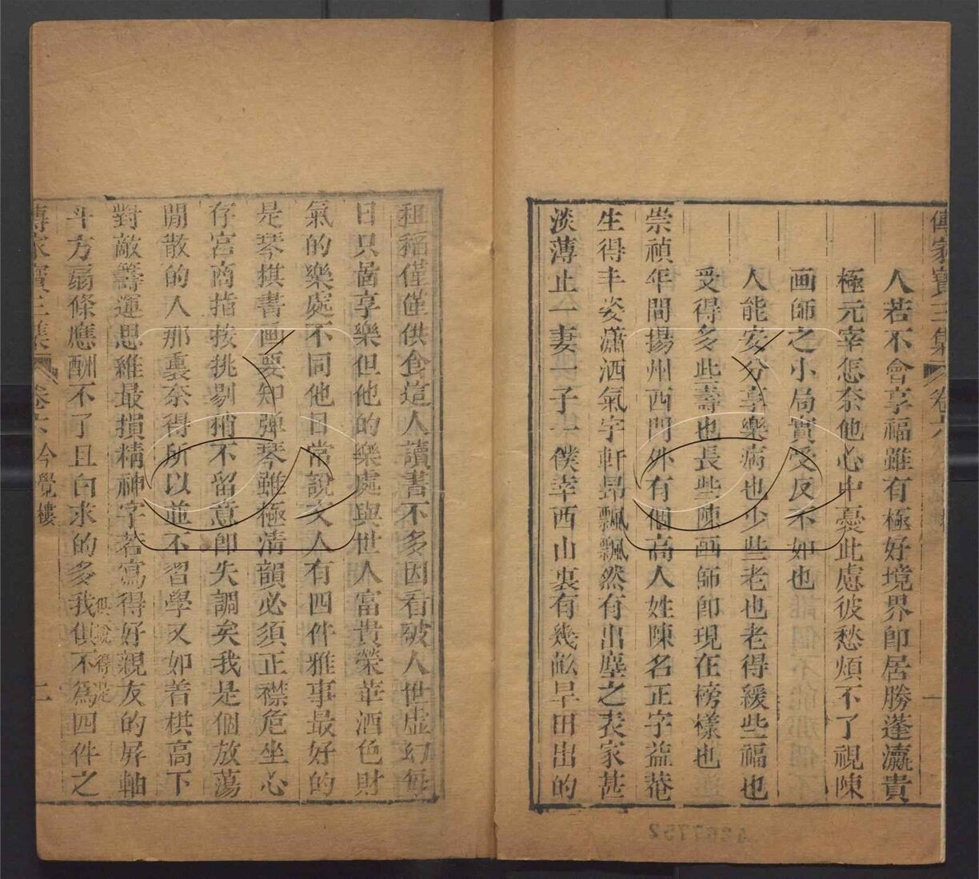 傳家寶三集 卷六
人若不會享福雖有極好境界卽居勝蓬瀛貴
極元宰怎奈他心中憂此慮彼愁煩不了視陳
画師之小局實受反不如也
人能安分享樂病也少些老也老得緩些福也
受得多些壽也長些陳画師卽現在榜樣也
崇禎年間揚州西門外有個高人姓陳名正字益菴
生得丰姿瀟洒氣宇軒昻飄飄然有出塵之表家甚
淡薄止一妻一子一僕幸西山裏有幾畝旱田出的
租稲僅僅供食這人讀書不多因看破人世虛幻每
日只啚享樂但他的樂處與世人富貴榮華酒色財
氣的樂處不同他日常說文人有四件雅事最好的
是琴棋書画要知彈琴雖極淸韻必須正襟危坐心
存宮商指按挑剔稍不留意卽失調矣我是個放蕩
閒散的人那裏奈得所以並不習學又如着棋高下
對敵籌運思維最損精神字若寫得好親友的屏軸
斗方扇條應酬不了且白求的多我俱不爲四件之
俱說得是
傳家寶三集 卷六 今覺樓 二
4867752